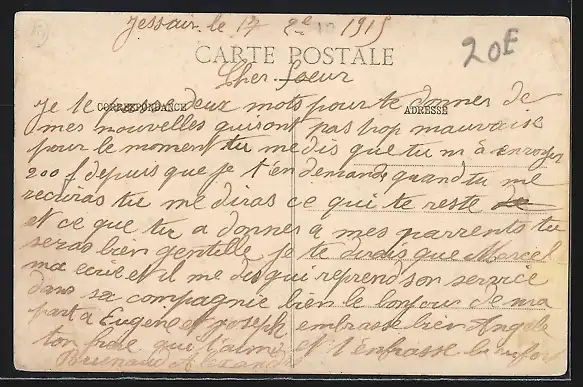 Jessair le 17 2e 10 1915
20F
CARTE POSTALE
Cher Soeur
CORRESPONDANCE
ADRESSE
Je te deux mots pour te donner de
mes nouvelles qui sont pas trop mauvaise
pour le moment tu me dis que tu m'à envoyer
200 f depuis que je t'en demande quand tu me
recuiras tu me diras ce qui te reste de
et ce que tu a donner a mes parrents tu
seras bien gentille je te dirais que Marcel
ma ecrie et il me dis qui reprend son service
dans sa compagnie bien le bonjour de ma
part a Eugene et joseph embrasse bien Angele
ton frere qui t'aime et t'enbrasse bien fort